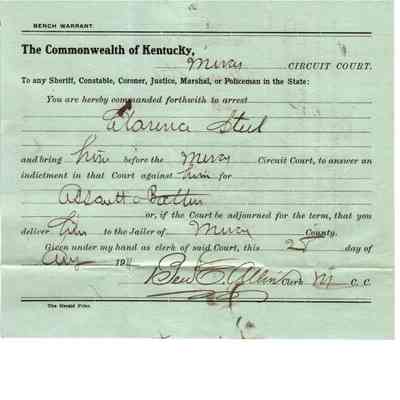 BENCH WARRANT.
The Commonwealth of Kentucky,
Mercer CIRCUIT COURT.
To any Sheriff, Constable, Coroner, Justice, Marshal, or Policeman in the State:
You are hereby commanded forthwith to arrest
Clarence Steel
and bring him before the Mercer Circuit Court, to answer an
indictment in that Court against him for
Assault & Batter
or, if the Court be adjourned for the term, that you
deliver him to the Jailer of Mercer County.
Given under my hand as clerk of said Court, this day of
Aug 191
Ben C. Allin Clerk M C. C.
The Herald Print.